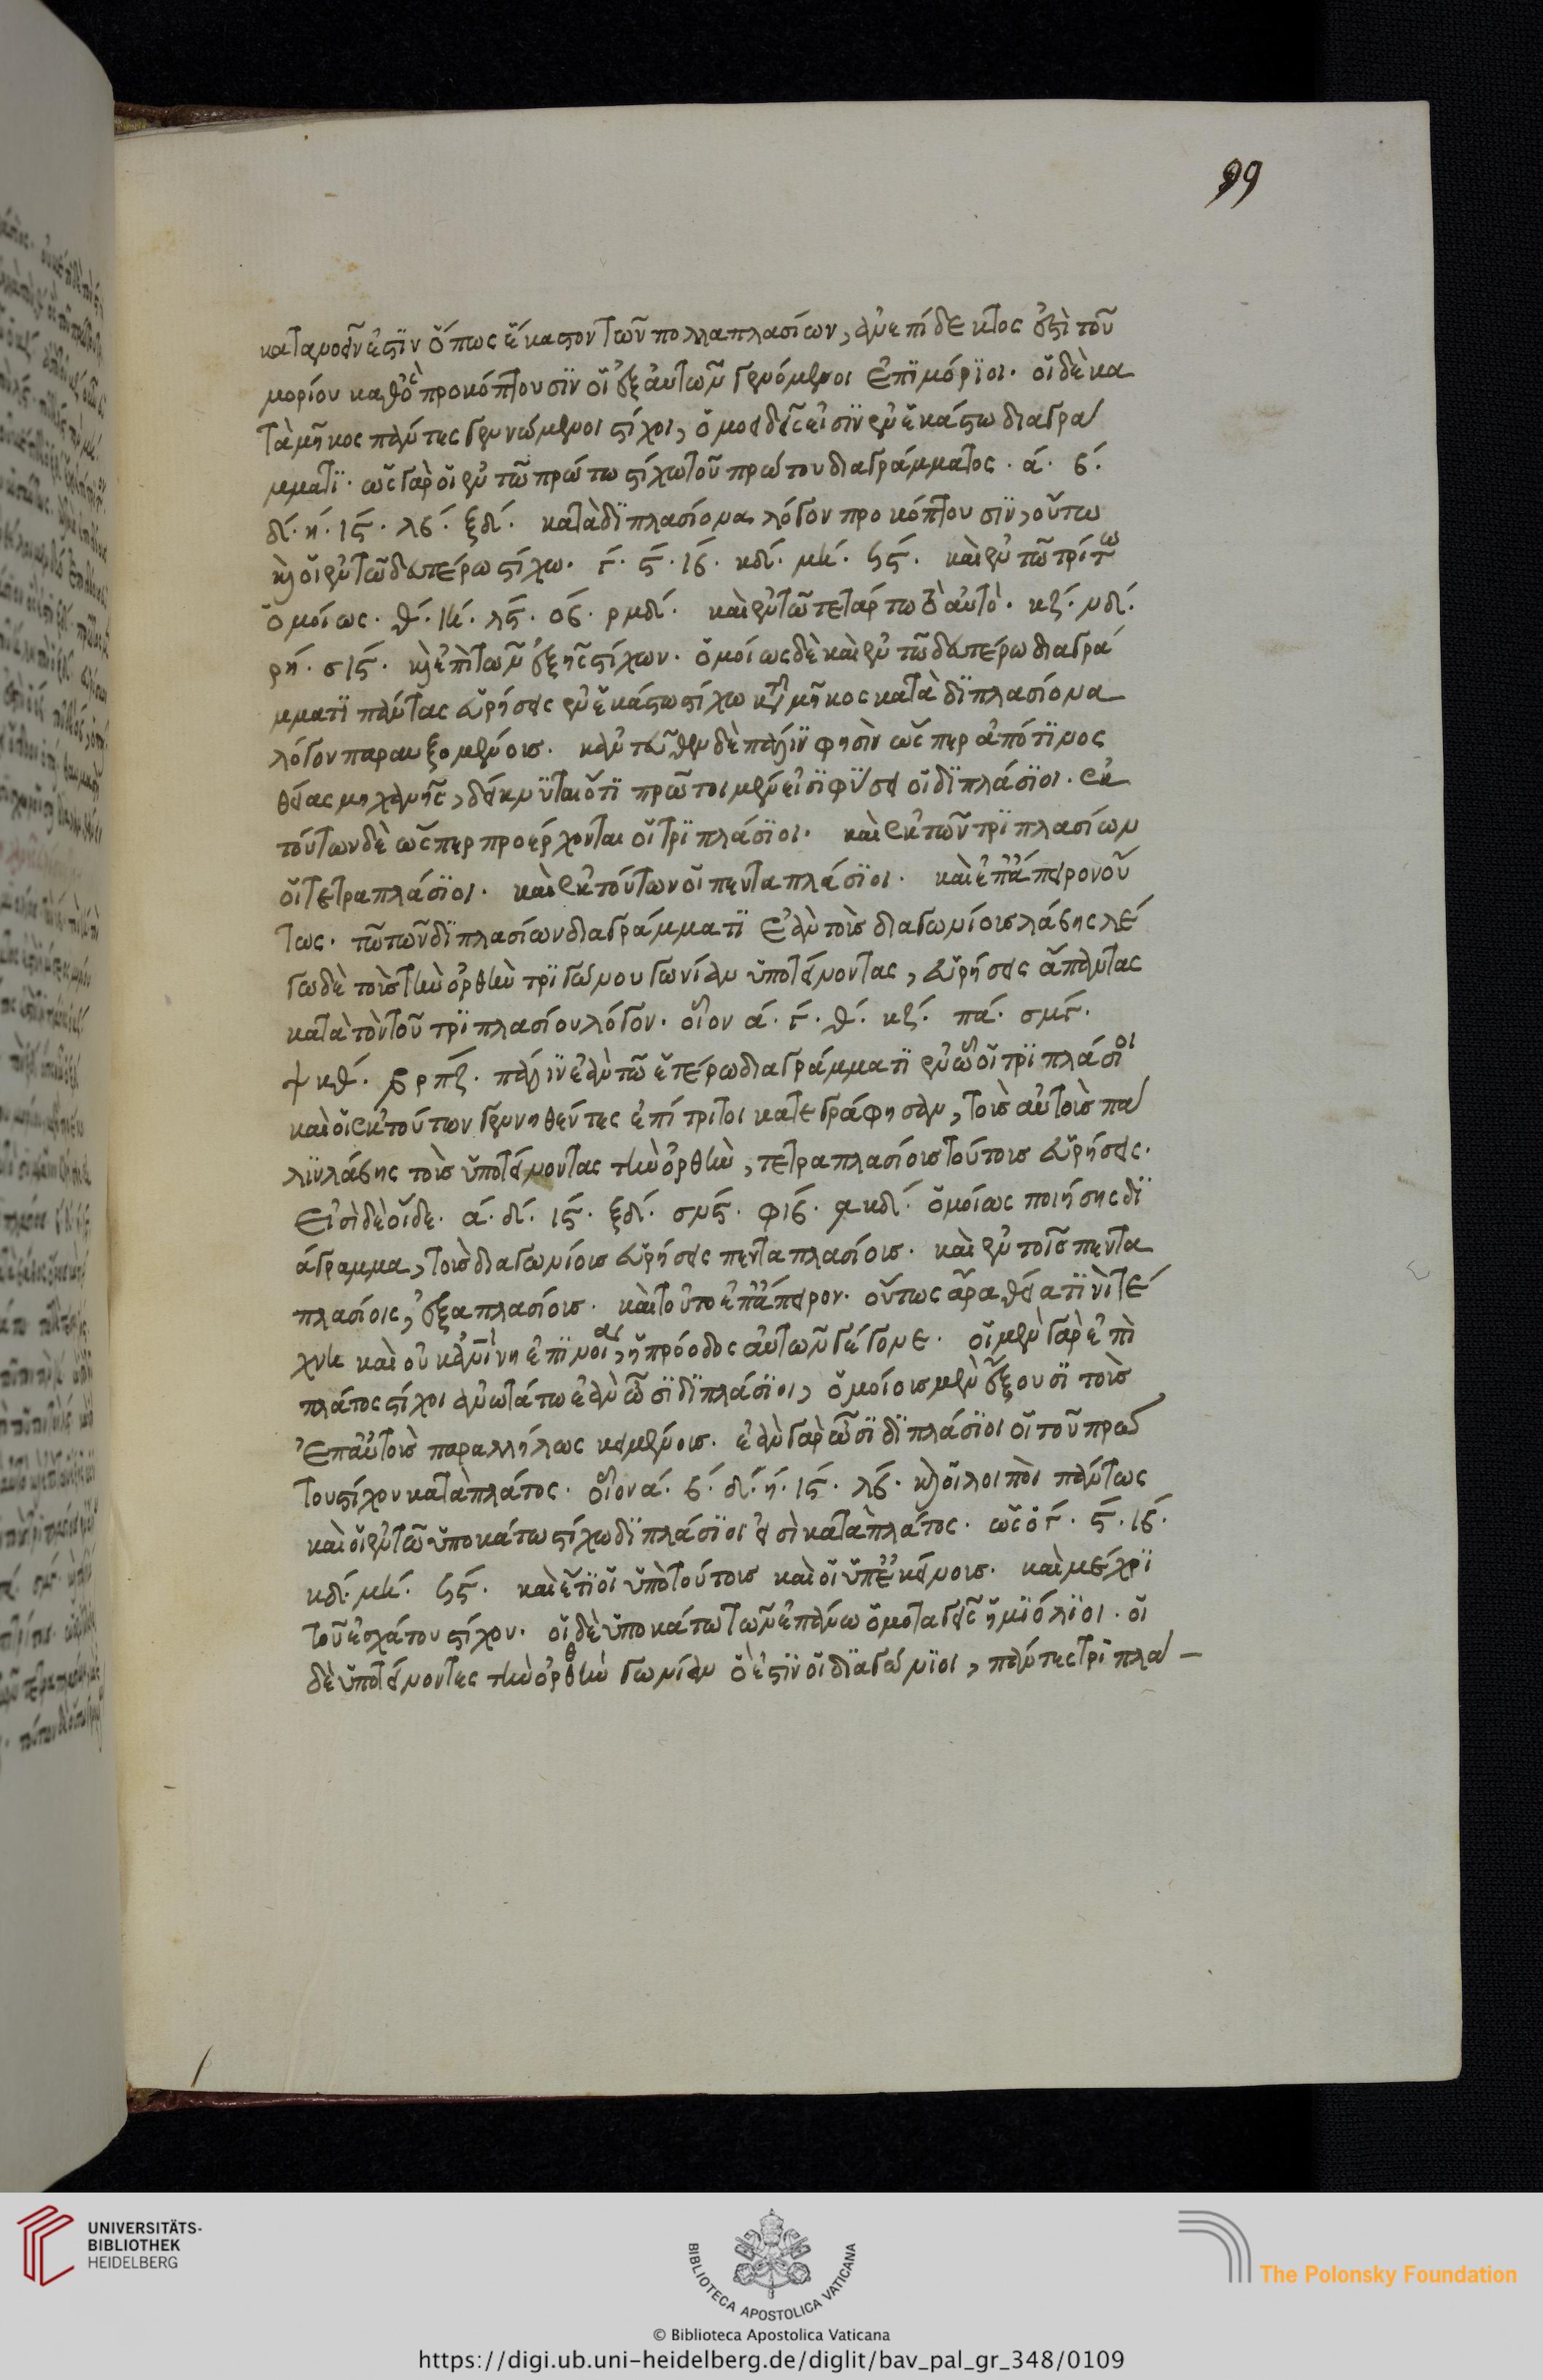 99
κατανοεῖν ἐστὶν ὅπως ἕκαστον τῶν πολλαπλασίων, ἀνεπίδεκτος ἐστὶ τοῦ
μορίου καθὸ προκόπτουσιν οἱ ἐξ αὐτῶν γενόμενοι ἐπιμόριοι. οἱ δὲ κα
τὰ μῆκος πάντες γεννώμενοι στίχοι, ὁμοειδεῖς εἰσὶν ἐν ἑκάστω διαγρά
μματι. ὡς γὰρ οἱ ἐν τῶ πρώτω στίχω τοῦ πρώτου διαγράμματος. α. β.
δ. η. ις. λβ. ξδ. κατὰ διπλασίονα λόγον προκόπτουσιν, οὕτω
καὶ οἱ ἐν τῶ δευτέρω στίχω. γ. ς. ιβ. κδ. μη. ϟς. καὶ ἐν τῶ τρίτω
ὁμοίως. θ. ιη. λς. οβ. ρμδ. καὶ ἐν τῶ τετάρτω τὸ αὐτὸ. κζ. νδ.
ρη. σις. καὶ ἐπὶ τῶν ἐξῆς στίχων. ὁμοίως δὲ καὶ ἐν τῶ δευτέρω διαγρά
μματι πάντας εὑρήσεις ἐν ἑκάστω στίχω κατὰ μῆκος κατὰ διπλασίονα
λόγον παραυξομένοις. κἀνταῦθεν δὲ πάλιν φησὶν ὥσπερ ἀπό τινος
θείας μηχανῆς, δείκνυται ὅτι πρῶτοι μὲν εἰσὶ φύσει οἱ διπλάσιοι. ἐκ
τούτων δὲ ὥσπερ προέρχονται οἱ τριπλάσιοι. καὶ ἐκ τῶν τριπλασίων
οἱ τετραπλάσιοι. καὶ ἐκ τούτων οἱ πενταπλάσιοι. καὶ ἐπ' ἄπειρον οὕ
τως. τῶ τῶν διπλασίων διαγράμματι ἐὰν τοὺς διαγωνίους λάβης λέ
γω δὲ τοὺς τὴν ὀρθὴν τριγώνου γωνίαν ὑποτείνοντας, εὑρήσεις ἅπαντας
κατὰ τὸν τοῦ τριπλασίου λόγον. οἷον α. γ. θ. κζ. πα. σμγ.
ψκθ. βρπζ. πάλιν ἐὰν τῶ ἑτέρω διαγράμματι ἐν ὧ οἱ τριπλάσιοι
καὶ οἱ ἐκ τούτων γεννηθέντες ἐπίτριτοι κατεγράφησαν, τοὺς αὐτοὺς πά
λιν λάβης τοὺς ὑποτείνοντας τὴν ὀρθὴν, τετραπλασίους τούτους εὑρήσεις.
εἰσὶ δὲ οἵδε. α. δ. ις. ξδ. σνς. φιβ. ακδ. ὁμοίως ποιήσης δι
άγραμμα, τοὺς διαγωνίους εὑρήσεις πενταπλασίους. καὶ ἐν τοῖς πεντα
πλασίοις, ἑξαπλασίους. καὶ τοῦτο ἐπ' ἄπειρον. οὕτως ἄρα θεία τινὶ τέ
χνη καὶ οὐκ ἀνθρωπίνη ἐπινοία, ἡ πρόοδος αὐτῶν γέγονε. οἱ μὲν γὰρ ἐπὶ
πλάτος στίχοι ἀνωτάτω ἐὰν ὦσι διπλάσιοι, ὁμοίους μὲν ἕξουσι τοὺς
ἐπ' αὐτοὺς παραλλήλως κειμένους. ἐὰν γὰρ ὦσι διπλάσιοι οἱ τοῦ πρώ
του στίχου κατὰ πλάτος. οἷον α. β. δ. η. ις. λβ. καὶ οἱ λοιποὶ πάντως
καὶ οἱ ἐν τῶ ὑποκάτω στίχω διπλάσιοι εἰσὶ κατὰ πλάτος. ὡς ὁ γ. ς. ιβ.
κδ. μη. ϟς. καὶ ἔτι οἱ ὑπὸ τούτους καὶ οἱ ὑπ' ἐκείνους. καὶ μέχρι
τοῦ ἐσχάτου στίχου. οἱ δὲ ὑποκάτω τῶν ἐπάνω ὁμοταγεῖς ἡμιόλιοι. οἱ
δὲ ὑποτείνοντες τὴν ὀρθὴν γωνίαν ὅ ἐστὶν οἱ διαγώνιοι, πάντες τριπλά
UNIVERSITÄTS-
BIBLIOTHEK
HEIDELBERG
BIBLIOTECA APOSTOLICA VATICANA
The Polonsky Foundation
© Biblioteca Apostolica Vaticana
https://digi.ub.uni-heidelberg.de/diglit/bav_pal_gr_348/0109